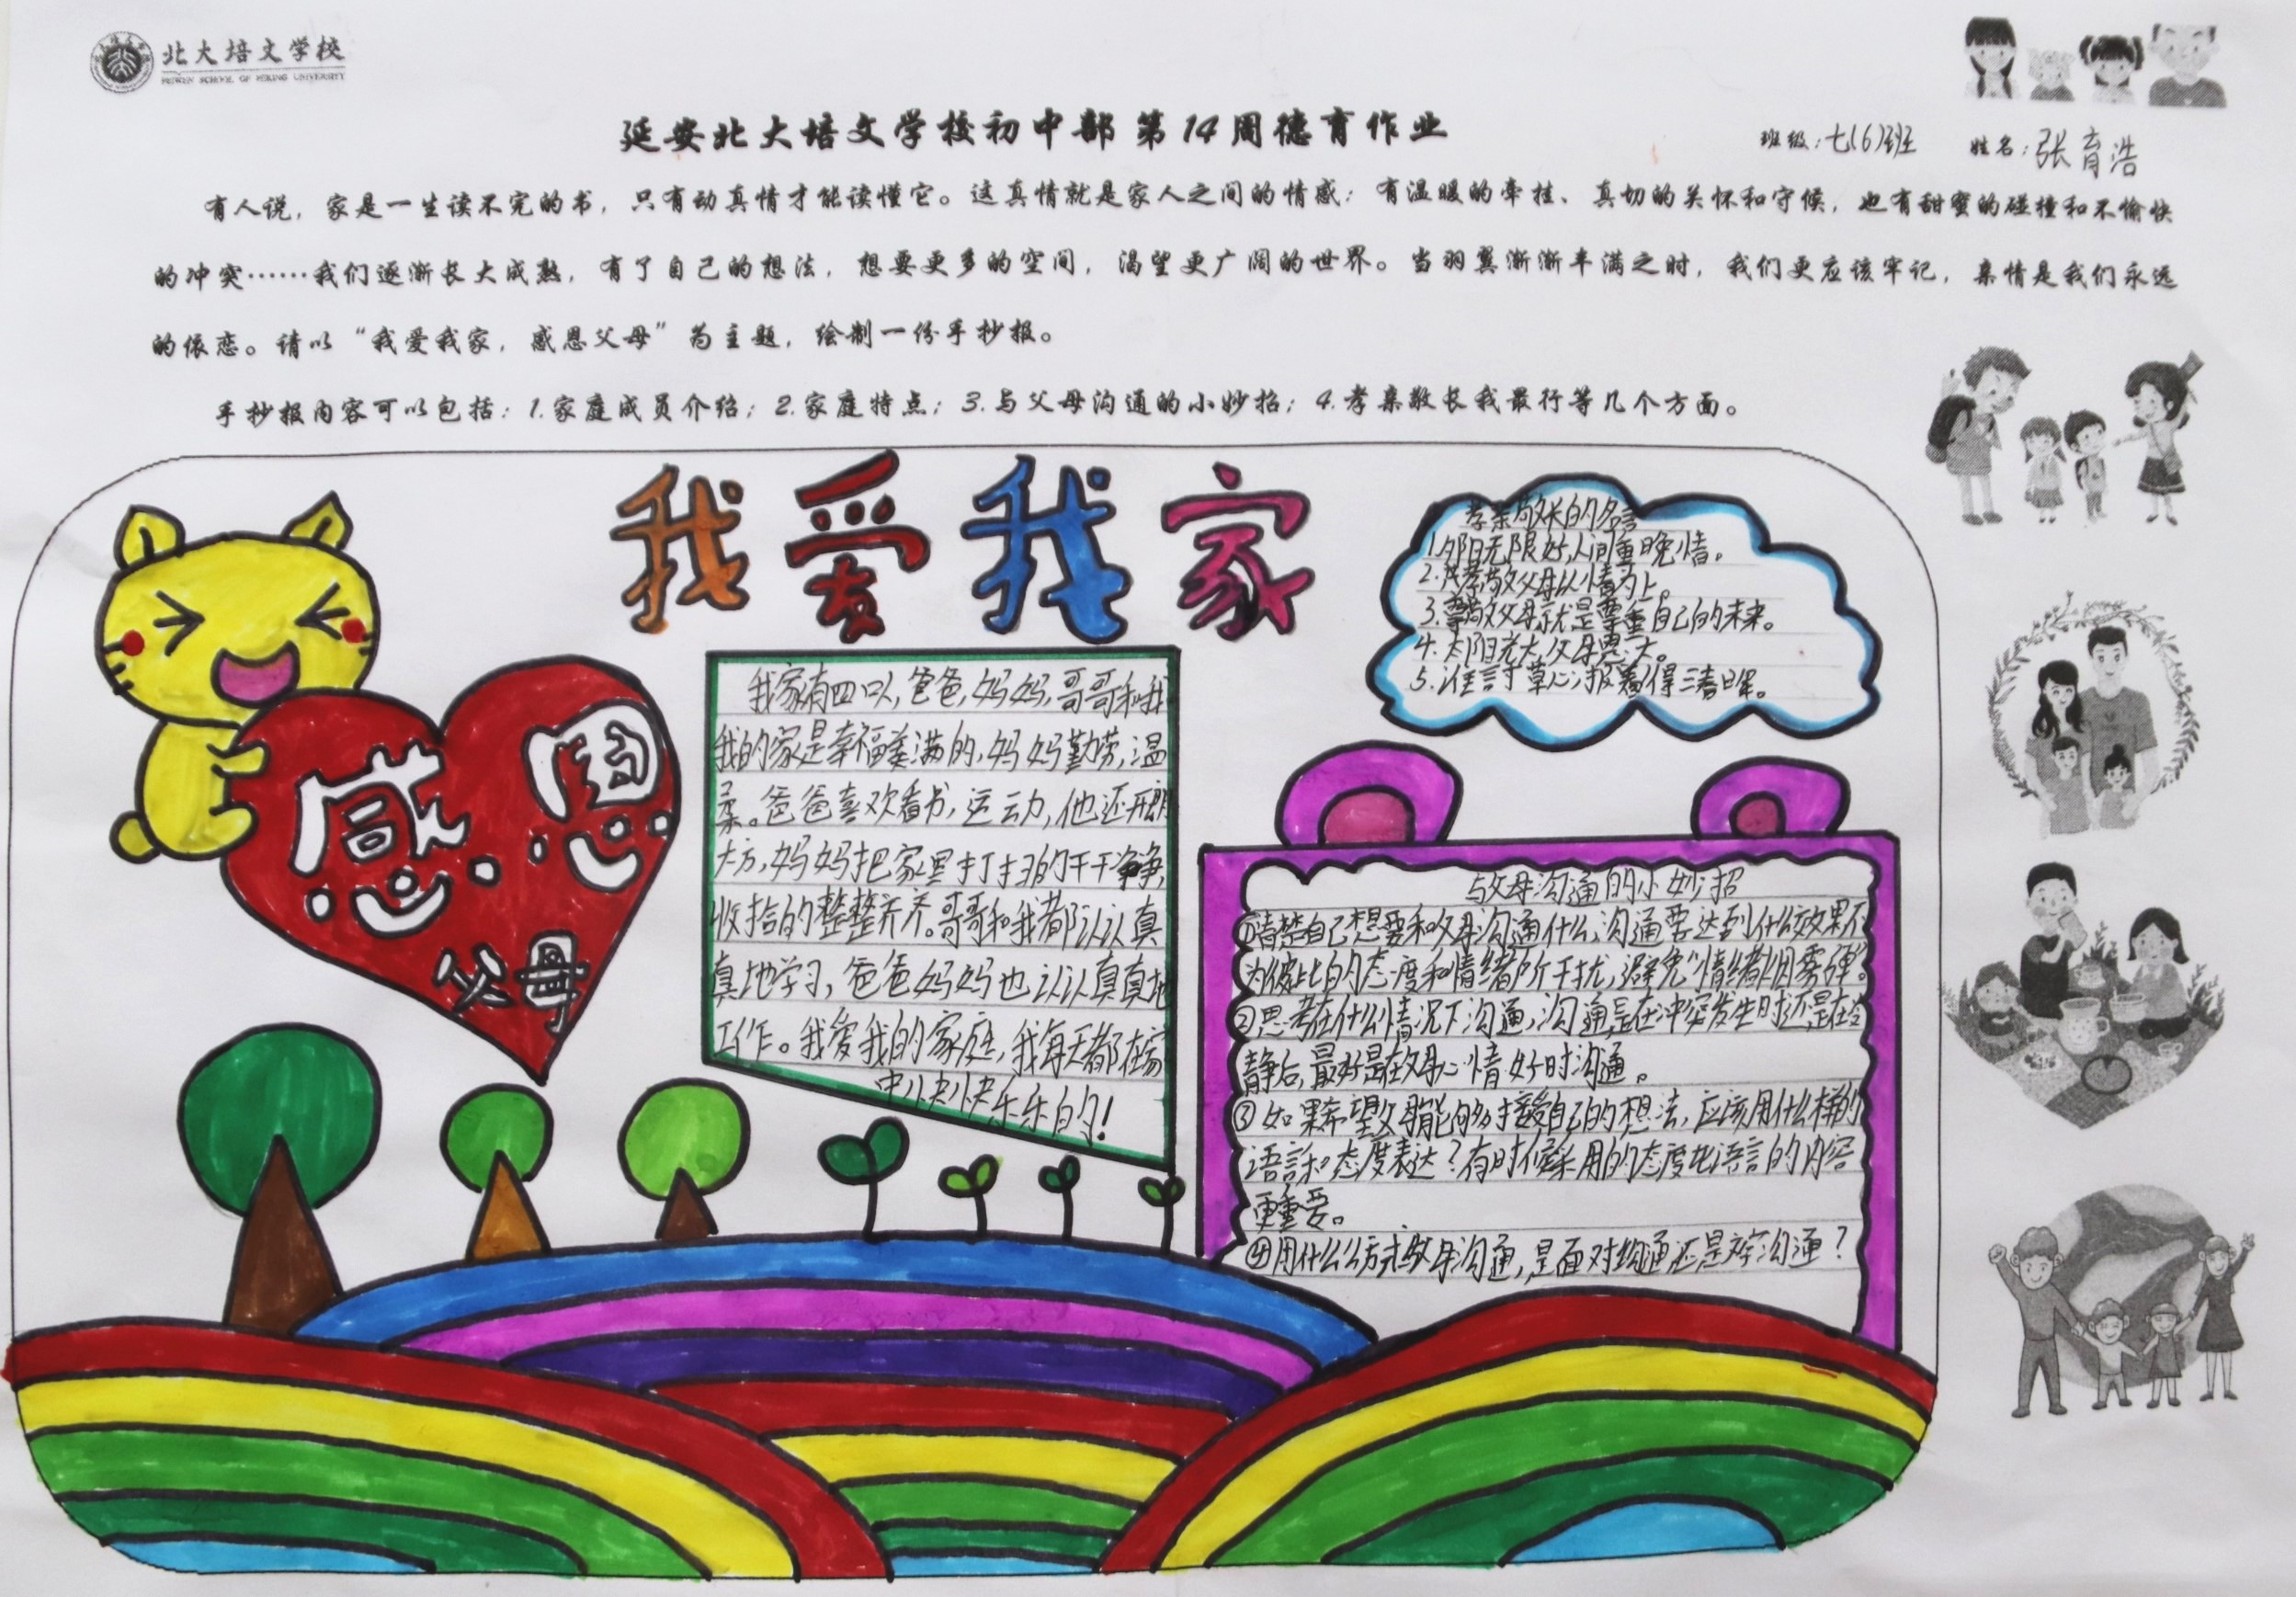 北大培文学校
PEIWEN SCHOOL OF PEKING UNIVERSITY
延安北大培文学校初中部第14周德育作业
班级:七(6)班 姓名:张育浩
有人说，家是一生读不完的书，只有动真情才能读懂它。这真情就是家人之间的情感：有温暖的牵挂、真切的关怀和守候，也有甜蜜的碰撞和不愉快
的冲突……我们逐渐长大成熟，有了自己的想法，想要更多的空间，渴望更广阔的世界。当羽翼渐渐丰满之时，我们更应该牢记，亲情是我们永远
的依恋。请以“我爱我家，感恩父母”为主题，绘制一份手抄报。
手抄报内容可以包括：1.家庭成员介绍；2.家庭特点；3.与父母沟通的小妙招；4.孝亲敬长我最行等几个方面。
我爱我家
感恩
父母
我家有四口人,爸爸,妈妈,哥哥和我
我的家是幸福美满的,妈妈勤劳,温
柔。爸爸喜欢看书,运动,他还开朗
大方,妈妈把家里打扫的干干净净,
收拾的整整齐齐。哥哥和我都认认真
真地学习,爸爸妈妈也认认真真地
工作。我爱我的家庭,我每天都在家
中快快乐乐的!
孝亲敬长的名言
1.夕阳无限好,人间重晚情。
2.孝敬父母以情为上。
3.尊敬父母就是尊重自己的未来。
4.太阳光大,父母恩大。
5.谁言寸草心,报得三春晖。
与父母沟通的小妙招
①清楚自己想要和父母沟通什么,沟通要达到什么效果不
为彼此的态度和情绪所干扰,避免“情绪烟雾弹”。
②思考在什么情况下沟通,沟通是在冲突发生时还是在冷
静后,最好是在父母心情好时沟通。
③如果希望父母能够接受自己的想法,应该用什么样的
语言和态度表达?有时候采用的态度比语言的内容
更重要。
④用什么方式与父母沟通,是面对沟通还是文字沟通?